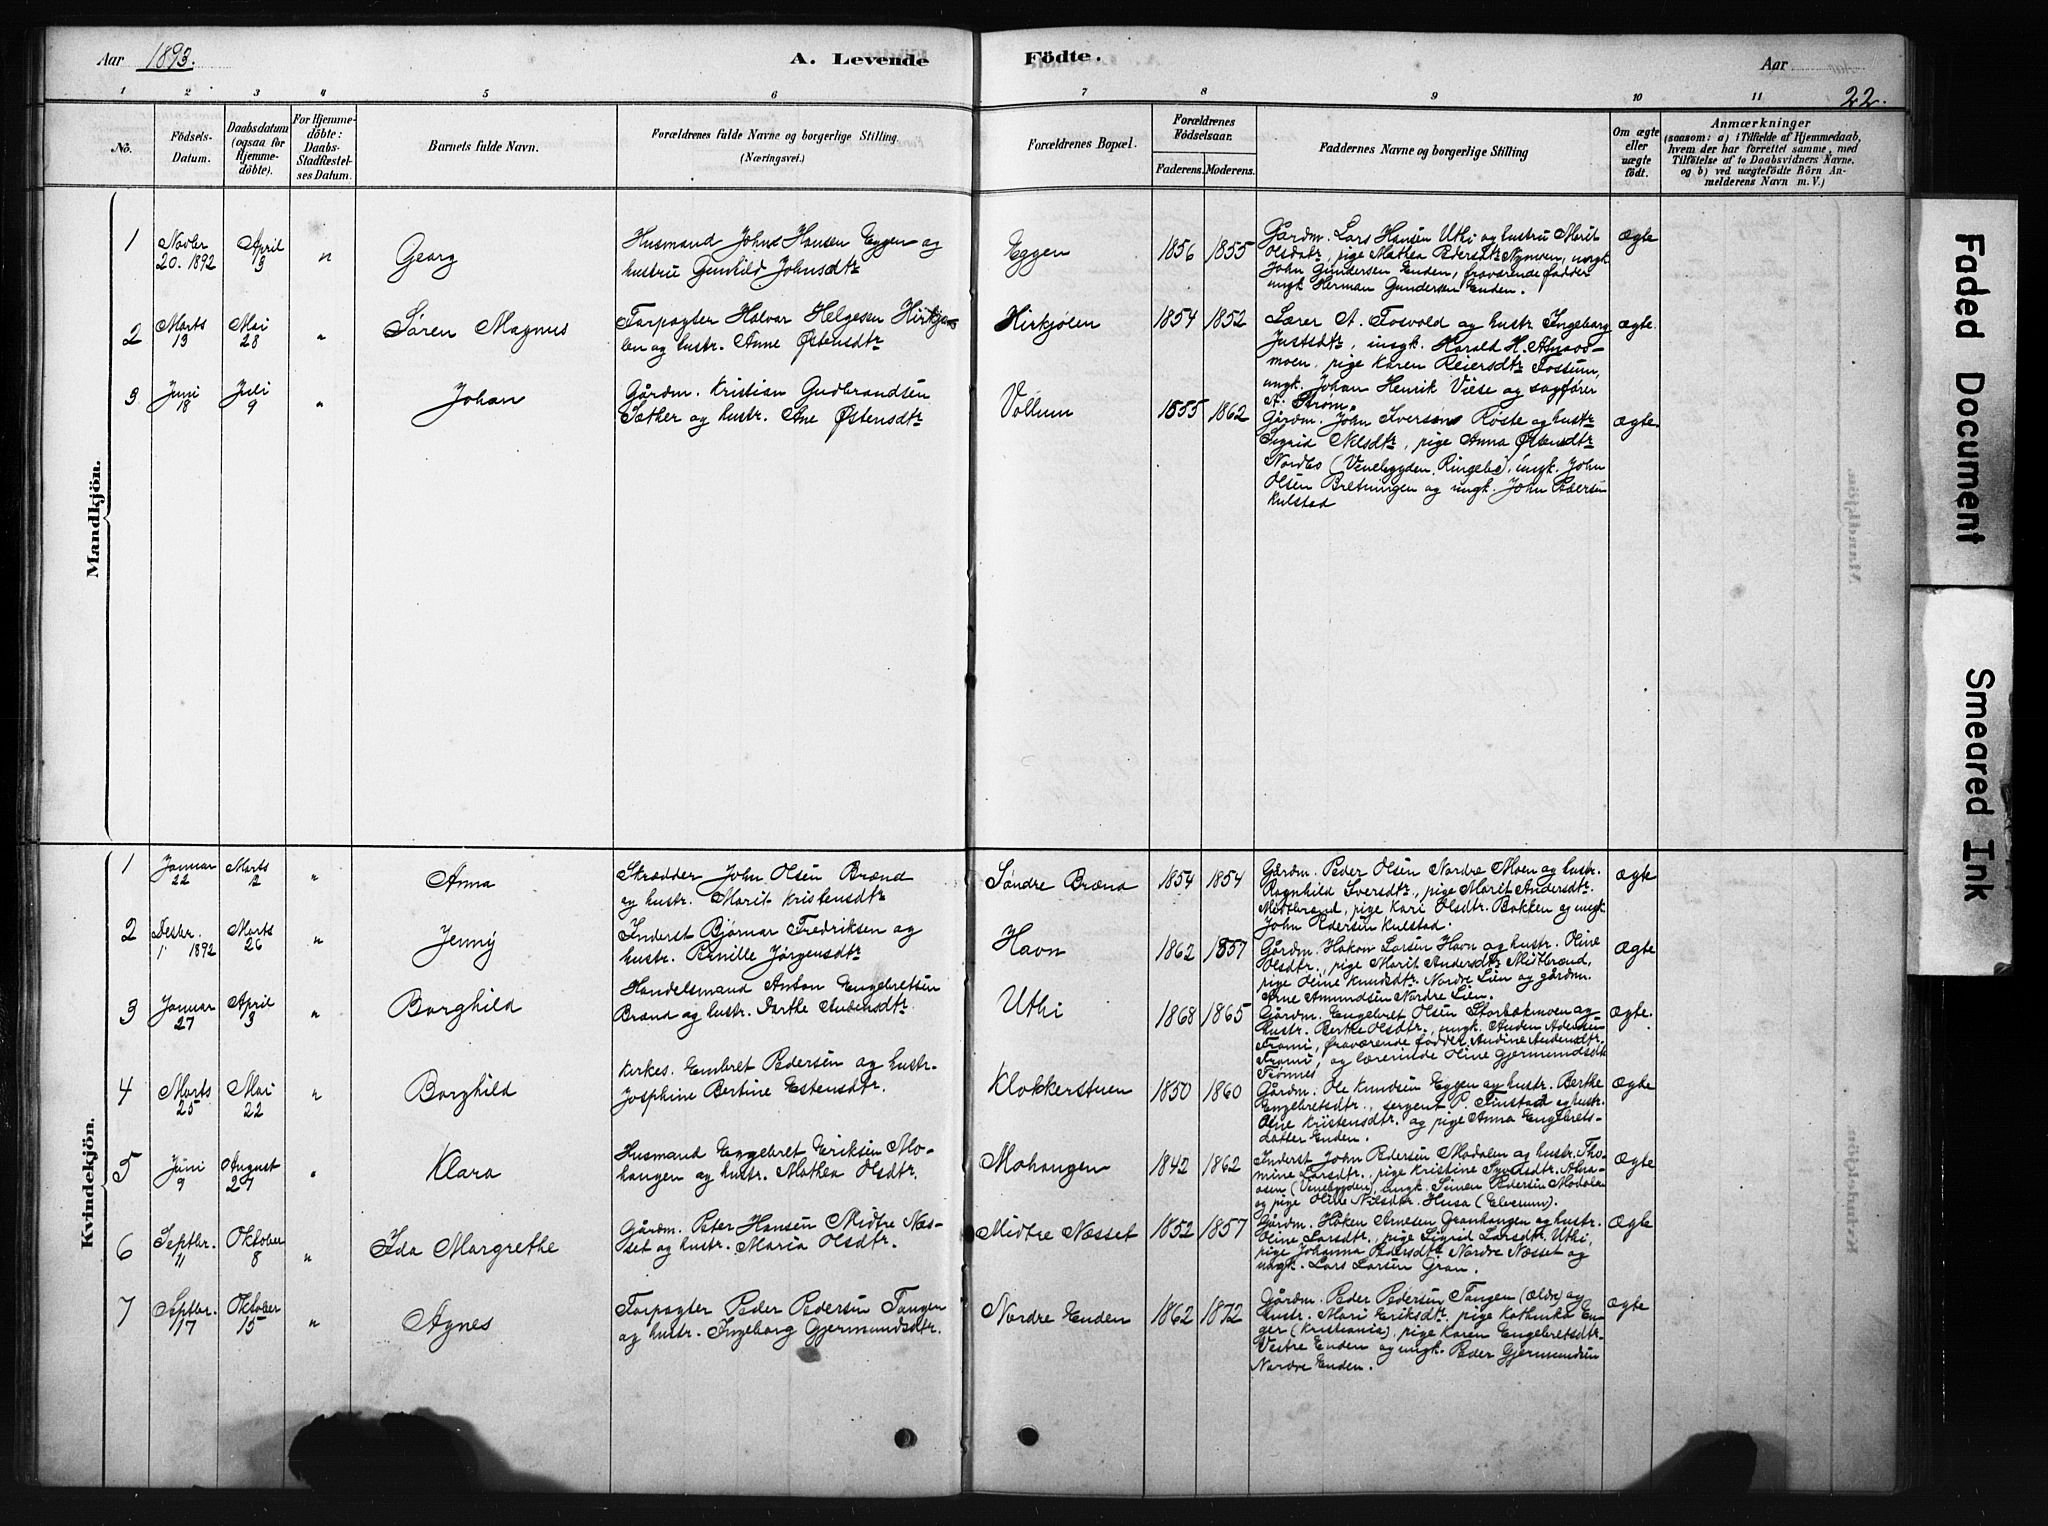 Aar 1893.
A. Levende
Födte.
Aar
22.
1 2 3 4 5 6 7 8 9 10 11
No.
Födsels-
Datum.
Daabsdatum
(ogsaa for
Hjemme-
döbte).
For Hjemme-
döbte:
Daabs-
Stadfæstel-
ses Datum.
Barnets fulde Navn.
Forældrenes fulde Navne og borgerlige Stilling.
(Næringsvei.)
Forældrenes Bopæl.
Forældrenes
Födselsaar.
Faderens. Moderens.
Faddernes Navne og borgerlige Stilling
Om ægte
eller
uægte
födt.
Anmærkninger
(saasom: a) i Tilfælde af Hjemmedaab,
hvem der har forrettet samme, med
Tilföielse af to Daabsvidners Navne.
og b) ved uægtefödte Börn An-
melderens Navn m. V.)
Mandkjön.
1
Novbr
20. 1892
April
3
"
Georg
Husmand Johns Hansen Eggen og
hustru Gunhild Johnsdtr
Eggen
1856 1855
Gårdm. Lars Hansen Uthi og hustru Marit
Olsdatr, pige Mathea Pedersdtr Nymoen, ungk.
John Gundersen Enden, fraværende fadder
ungk Herman Gundersen Enden.
Ægte
2
Marts
13
Mai
28
"
Søren Magnus
Forpagter Halvar Helgesen Hirkjø-
len og hustr. Anne Østensdtr
Hirkjølen
1854 1852
Lærer A. Fosvold og hustr. Ingeborg
Justsdtr, ungk. Harald H. Atnaos-
moen, pige Karen Reiersdtr Fossum,
ungk. Johan Henrik Wiese og sagfører
A. Strøm.
ægte.
3
Juni
18
Juli
9
"
Johan
Gårdm. Kristian Gudbrandsen
Sæther og hustr. Ane Østensdtr
Vollum
1855 1862
Gårdm. John Iversens Røste og hustr
Sigrid Nilsdtr, pige Anna Østensdtr
Nordbs (Venebygden, Ringebo), ungk. John
Olsen Bretningen og ungk. John Pedersen
Kulstad
ægte.
Kvindekjön.
1
Januar
22
Marts
12
"
Anna
Skrædder John Olsen Brænd
og hustr. Marit Kristensdtr
Søndre Brænd
1854 1854
Gårdm. Peder Olsen Nordre Moen og hustr.
Ragnhild Iversdtr, pige Marit Andersdtr.
Midtbrænd, pige Kari Olsdtr. Bakken og ungk.
John Pedersen Kulstad.
Ægte
2
Desbr.
1. 1892
Marts
26
"
Jenny
Inderst Bjørnar Fredriksen og
hustr. Pernille Jørgensdtr
Havn
1862 1857
Gårdm. Håkon Larsen Havn og hustr. Oline
Olsdtr., pige Marit Andersdtr Midtbrænd,
pige Oline Knudsdtr. Nordre Lien og gårdm.
Arne Amundsen Nordre Lien.
Ægte
3
Januar
27
April
3
"
Borghild
Handelsmand Anton Engebretsen
Brænd og hustr. Dorthe Audensdtr.
Uthi
1868 1865
Gårdm. Engebret Olsen Storbækmoen og
hustr. Berthe Olsdtr., ungk. Auden Adensen
Fromi, fraværende fadder, Audine Audensdtr.
Fromi, og lærerinde Oline Gjermundsdtr
Trønnes
Ægte.
4
Marts
25
Mai
22
"
Borghild
Kirkes. Embret Pedersen og hustr.
Josephine Bertine Estensdtr.
Klokkerstuen
1850 1860
Gårdm. Ole Knudsen Eggen og hustr. Berthe
Engebretsdtr., sergent P. Finstad og hustr.
Oline Kristensdtr. og pige Anna Engebrets-
datter Enden.
Ægte
5
Juni
9
August
27
"
Klara
Husmand Engebret Eriksen Mo-
hangen og hustr. Mathea Olsdtr.
Mohangen
1842 1862
Inderst John Pedersen Modalen og hustr. Tho-
mine Larsdtr., pige Kristine Syversdtr. Atna-
osen (Venebygden), ungk. Simen Pedersen Modalen
og pige Oline Nilsdtr. Husa (Elverum).
Ægte
6
Septbr.
11
Oktober
8
"
Ida Margrethe
Gårdm. Peter Hansen Midtre Næs-
set og hustr. Maria Olsdtr.
Midtre Næsset
1852 1857
Gårdm. Håken Arnesen Granhangen og hustr.
Oline Larsdtr., pige Sigrid Larsdtr. Uthi,
pige Johanna Pedersdtr Nordre Næsset og
ungk. Lars Larsen Gran.
Ægte
7
Septbr.
17
Oktober
15
"
Agnes
Forpagter Peder Pedersen Tangen
og hustr. Ingeborg Gjermundsdtr.
Nordre Enden
1862 1872
Gårdm. Peder Pedersen Tangen (ældre) og
hustr. Mari Eriksdtr. pige Kathinka En-
ger (Kristiania), pige Karen Engebretsdtr.
Vestre Enden og ungk. Peder Gjermundsen
Nordre Enden.
Ægte
Faded Document
Smeared Ink